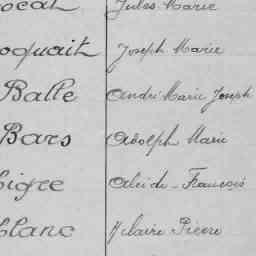 ocal Jules Marie
oquait Joseph Marie
Balle André Marie Joseph
Bars Adolph Marie
igre Alcide-François
blanc Hilaire Pierre